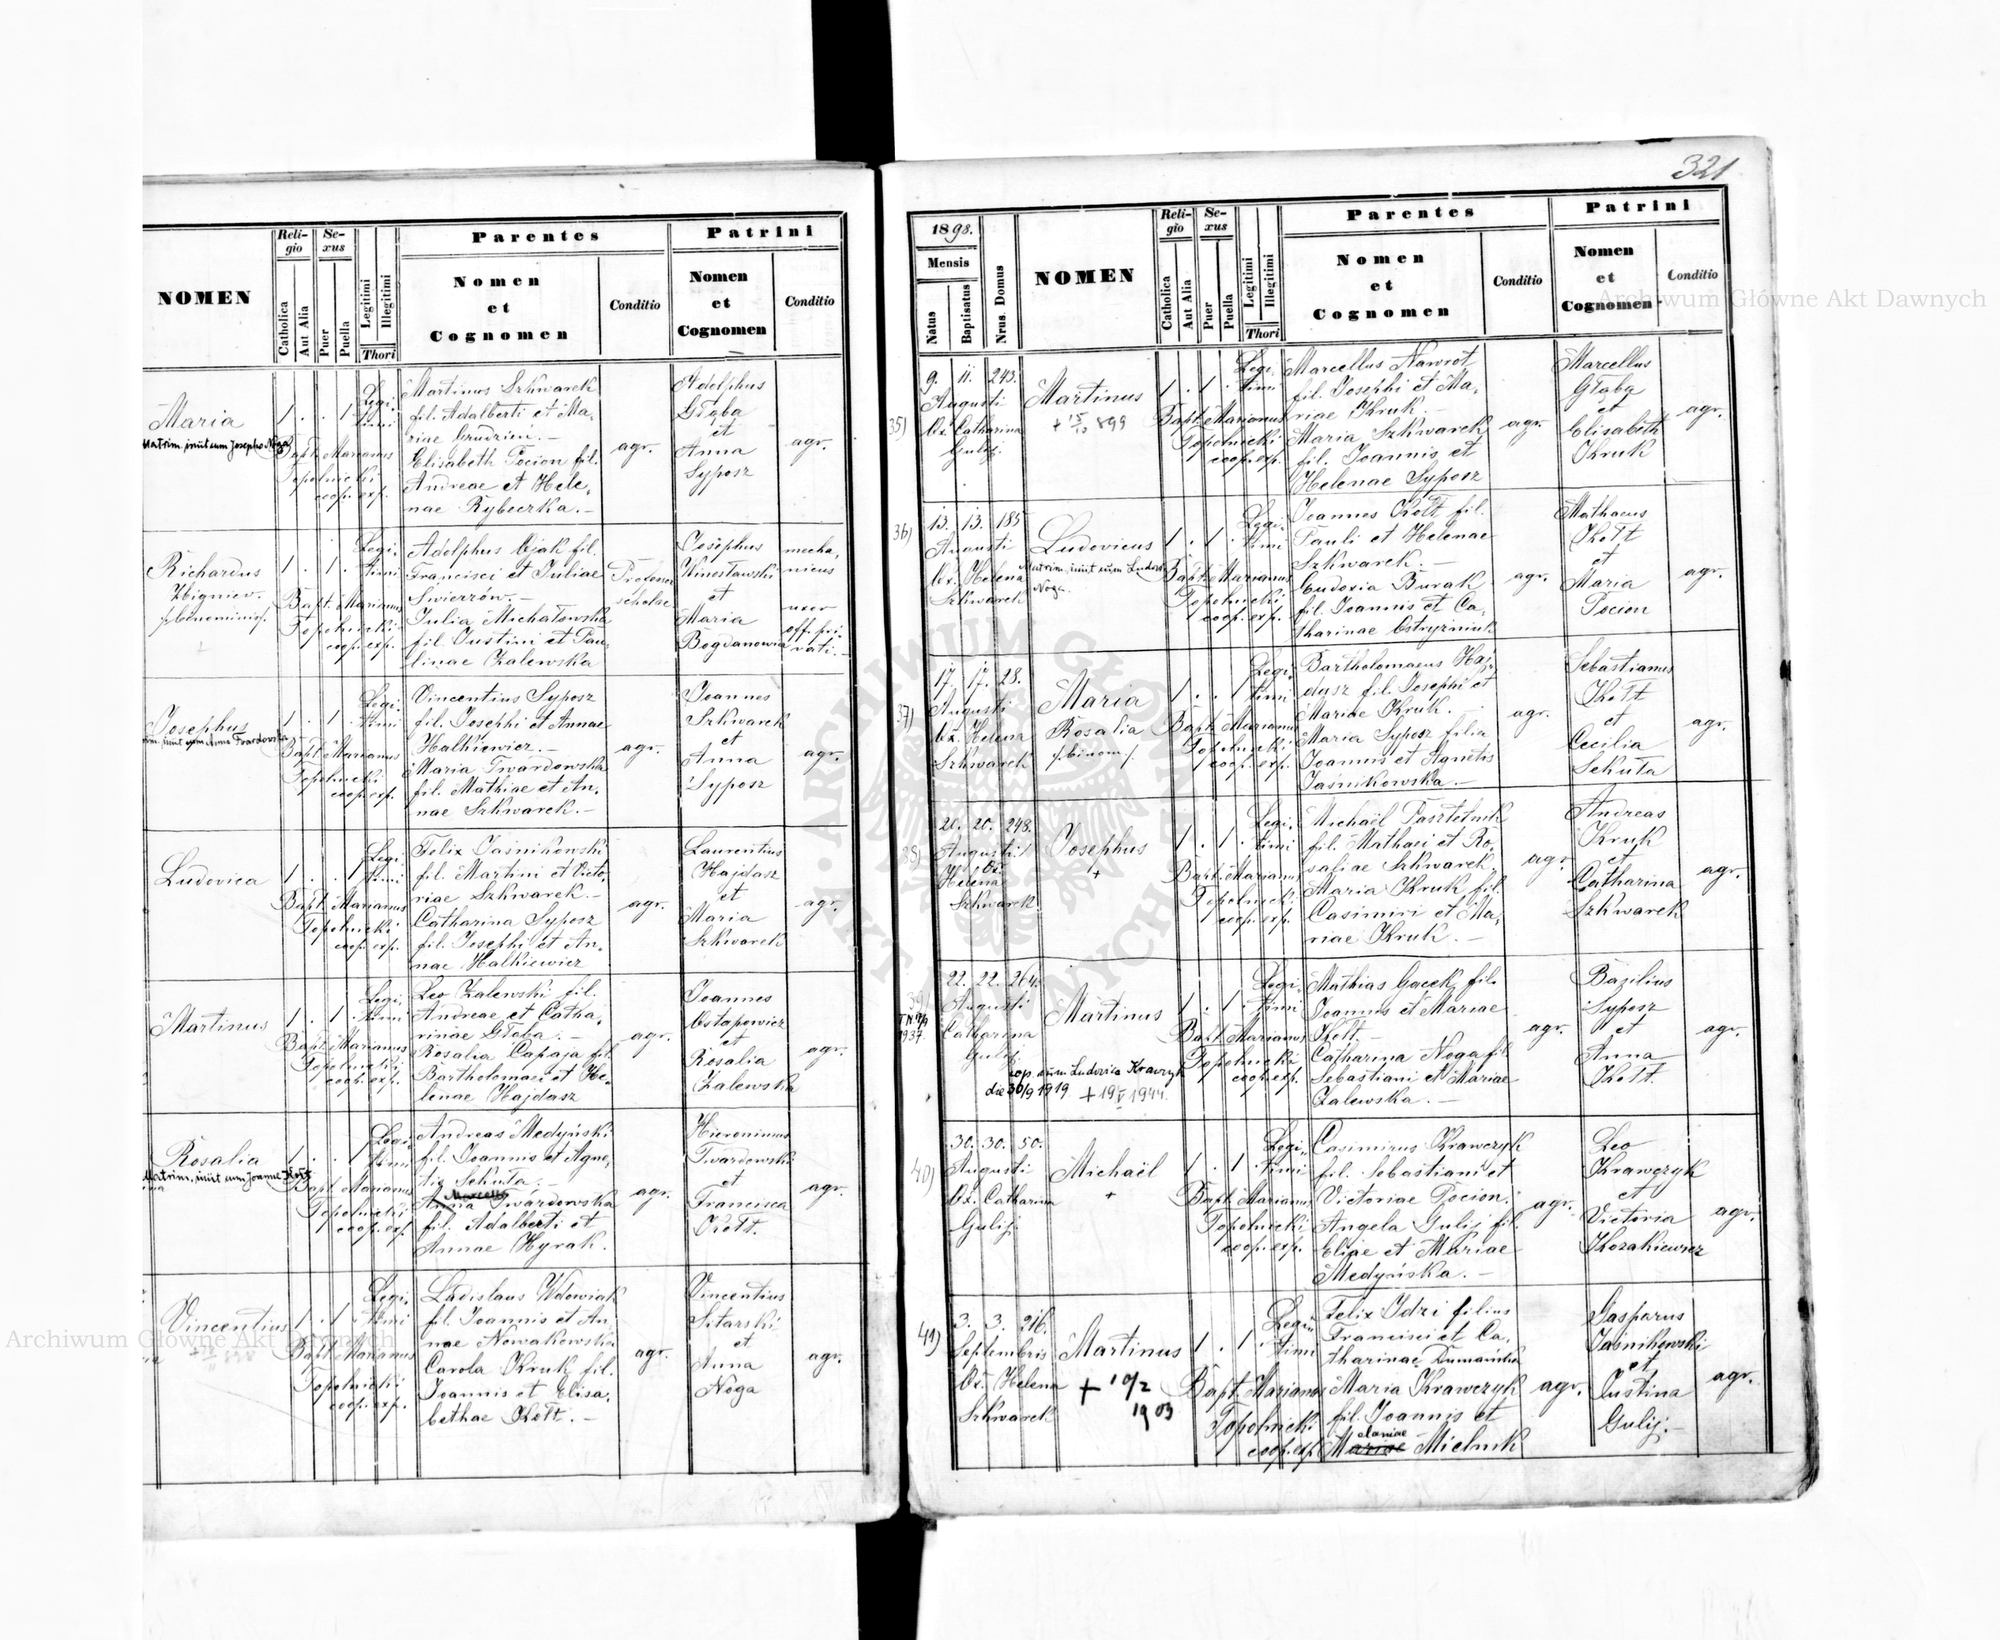 321
NOMEN
Religio
Sexus
Catholica
Aut Alia
Puer
Puella
Legitimi
Illegitimi
Thori
Parentes
Nomen
et
Cognomen
Conditio
Patrini
Nomen
et
Cognomen
Conditio
Maria
Matrim. iniit cum Josepho Noga
1 . . 1
Legi-
timi
Bapt. Marianus
Topolnicki
coop. exp.
Martinus Szkwarek
fil. Adalberti et Ma-
riae
Elisabeth Pocion fil.
Andreae et Hele-
nae Rybeczka.-
agr.
Adolphus
Głąba
et
Anna
Syposz
agr.
Richardus
Zbigniew
1 . 1 .
Legi-
timi
Bapt. Marianus
Topolnicki
coop. exp.
Adolphus Cjak fil.
Francisci et Juliae
Swierzów.-
Julia Michałowska
fil. Justini et Pau-
linae Zalewska
Professor
scholae
Josephus
Winosławski
et
Maria
Bogdanowicz
mecha-
nicus
uxor
off. pri-
vati.-
Josephus
iniit cum Anna Twardowska
1 . 1 .
Legi-
timi
Bapt. Marianus
Topolnicki
coop. exp.
Vincentius Syposz
fil. Josephi et Annae
Halkiewicz.-
Maria Twardowska
fil. Mathiae et An-
nae Szkwarek.-
agr.
Joannes
Szkwarek
et
Anna
Syposz
agr.
Ludovica
1 . . 1
Legi-
timi
Bapt. Marianus
Topolnicki
coop. exp.
Felix Jaśnikowski
fil. Martini et Victo-
riae Szkwarek.-
Catharina Syposz
fil. Josephi et An-
nae Halkiewicz
agr.
Laurentius
Hajdasz
et
Maria
Szkwarek
agr.
Martinus
1 . 1 .
Legi-
timi
Bapt. Marianus
Topolnicki
coop. exp.
Leo Zalewski fil.
Andreae et Catha-
rinae Głąba.-
Rosalia Capaja fil.
Bartholomaei et He-
lenae Hajdasz
agr.
Joannes
Ostapowicz
et
Rosalia
Zalewska
agr.
Rosalia
Matrim. iniit cum Joanne Kott
1 . . 1
Legi-
timi
Bapt. Marianus
Topolnicki
coop. exp.
Andreas Medyński
fil. Joannis et Agne-
tis Sekuta.-
Marcella
Anna Twardowska
fil. Adalberti et
Annae Hyrak.
agr.
Hieronimus
Twardowski
et
Francisca
Kott.
agr.
Vincentius
1 . 1 .
Legi-
timi
Bapt. Marianus
Topolnicki
coop. exp.
Ladislaus Wdowiak
fil. Joannis et An-
nae Nowakowska
Carola Kruk fil.
Joannis et Elisa-
bethae Kott.-
agr.
Vincentius
Sitarski
et
Anna
Noga
agr.
1898.
Mensis
Natus
Baptisatus
Nrus. Domus
NOMEN
Religio
Sexus
Catholica
Aut Alia
Puer
Puella
Legitimi
Illegitimi
Thori
Parentes
Nomen
et
Cognomen
Conditio
Patrini
Nomen
et
Cognomen
Conditio
35)
9. 11. 243.
Augusti
Ox. Catharina
Gulij.
Martinus
+ 15/10 899
1 . 1 .
Legi-
timi
Bapt. Marianus
Topolnicki
coop. exp.
Marcellus Nawrot
fil. Josephi et Ma-
riae Kruk.-
Maria Szkwarek
fil. Joannis et
Helenae Syposz
agr.
Marcellus
Głąba
et
Elisabeth
Kruk
agr.
36)
13. 13. 185
Augusti
Ox. Helena
Szkwarek
Ludovicus
Matrim. iniit cum Ludov.
Noga.
1 . 1 .
Legi-
timi
Bapt. Marianus
Topolnicki
coop. exp.
Joannes Kott fil.
Pauli et Helenae
Szkwarek.-
Eudoxia Burak
fil. Joannis et Ca-
tharinae Ostryżniuk
agr.
Mathaeus
Kott
et
Maria
Pocion
agr.
37)
17. 17. 28.
Augusti
Ox. Helena
Szkwarek
Maria
Rosalia
/:binom:/
1 . . 1
Legi-
timi
Bapt. Marianus
Topolnicki
coop. exp.
Bartholomaeus Haj-
dasz fil. Josephi et
Mariae Kruk.-
Maria Syposz filia
Joannis et Agnetis
Jaśnikowska.-
agr.
Sebastianus
Kott
et
Cecilia
Sekuta
agr.
38)
20. 20. 248.
Augusti
Ox.
Helena
Szkwarek
Josephus
+
1 . 1 .
Legi-
timi
Bapt. Marianus
Topolnicki
coop. exp.
Michaël Pasztetnik
fil. Mathaei et Ro-
saliae Szkwarek.
Maria Kruk fil.
Casimiri et Ma-
riae Kruk.-
agr.
Andreas
Kruk
et
Catharina
Szkwarek
agr.
39)
1937.
22. 22. 264.
Augusti
Catharina
Gulij.
Martinus
cop. cum Ludovica Krawczyk
die 30/9 1919 + 19/V 1944.
1 . 1 .
Legi-
timi
Bapt. Marianus
Topolnicki
coop. exp.
Mathias Gacek fil.
Joannis et Mariae
Kott.-
Catharina Noga fil.
Sebastiani et Mariae
Zalewska.-
agr.
Basilius
Syposz
et
Anna
Kott.
agr.
40)
30. 30. 50.
Augusti
Ox. Catharina
Gulij.
Michaël
+
1 . 1 .
Legi-
timi
Bapt. Marianus
Topolnicki
coop. exp.
Casimirus Krawczyk
fil. Sebastiani et
Victoriae Pocion.
Angela Gulij fil.
Eliae et Mariae
Medyńska.-
agr.
Leo
Krawczyk
et
Victoria
Kozakiewicz
agr.
41)
3. 3. 216.
Septembris
Ox. Helena
Szkwarek
Martinus
+ 10/2
1903
1 . 1 .
Legi-
timi
Bapt. Marianus
Topolnicki
coop. exp.
Felix Idzi filius
Francisci et Ca-
tharinae Dumańska
Maria Krawczyk
fil. Joannis et
elaniae
Mariae Mielnik
agr.
Gasparus
Jaśnikowski
et
Justina
Gulij.-
agr.
Archiwum Główne Akt Dawnych
Archiwum Główne Akt Dawnych
ARCHIWUM GŁÓWNE AKT DAWNYCH